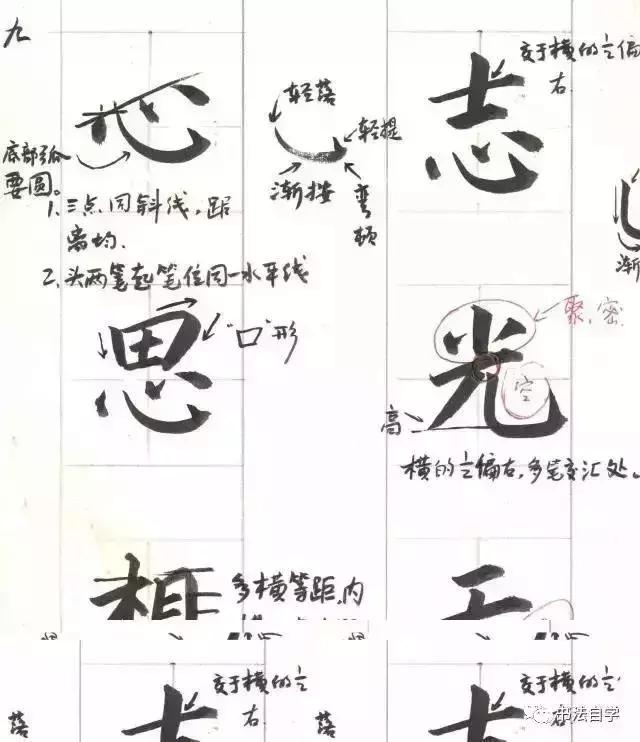 九
心
底部弧
要圆。
轻落
轻提
渐按
弯
顿
1、三点同斜线，距
离均.
2、头两笔起笔位同一水平线
志
交于横的½偏
右
渐
思
"口"形
光
聚、密
空
高
横的½偏右，多笔交汇处。
相
多横等距，内
落
交于横的½
右
落
交于横的½
右
书法自学